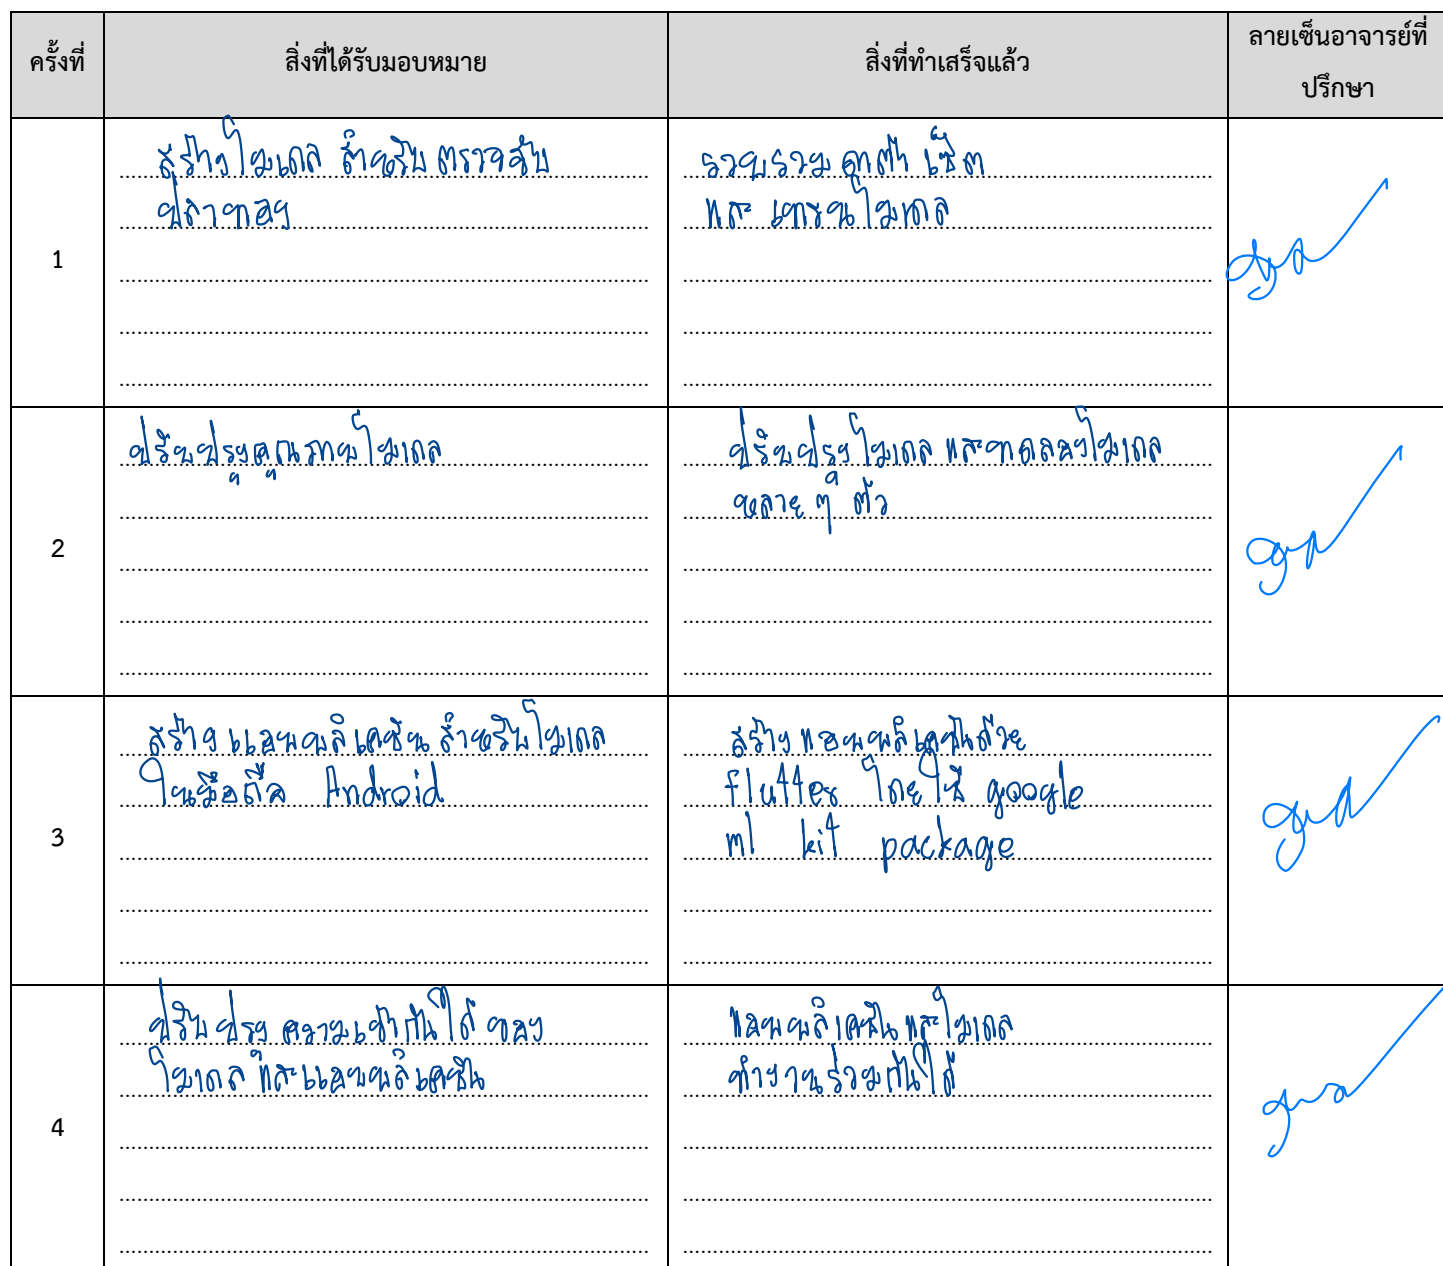 ครั้งที่ สิ่งที่ได้รับมอบหมาย สิ่งที่ทำเสร็จแล้ว ลายเซ็นอาจารย์ที่
ปรึกษา
1
สร้างโมเดล สำหรับ ตรวจจับ
ปลาทอง
รวบรวม ดาต้า เซ็ต
และ เทรนโมเดล
2
ปรับปรุงคุณภาพโมเดล
ปรับปรุงโมเดล และทดลองโมเดล
หลาย ๆ ตัว
3
สร้าง แอพพลิเคชัน สำหรับโมเดล
ในมือถือ Android
สร้าง แอพพลิเคชันด้วย
flutter โดยใช้ google
ml kit package
4
ปรับ ปรุง ความเข้ากันได้ ของ
โมเดล และแอพพลิเคชัน
แอพพลิเคชัน และโมเดล
ทำงานร่วมกันได้